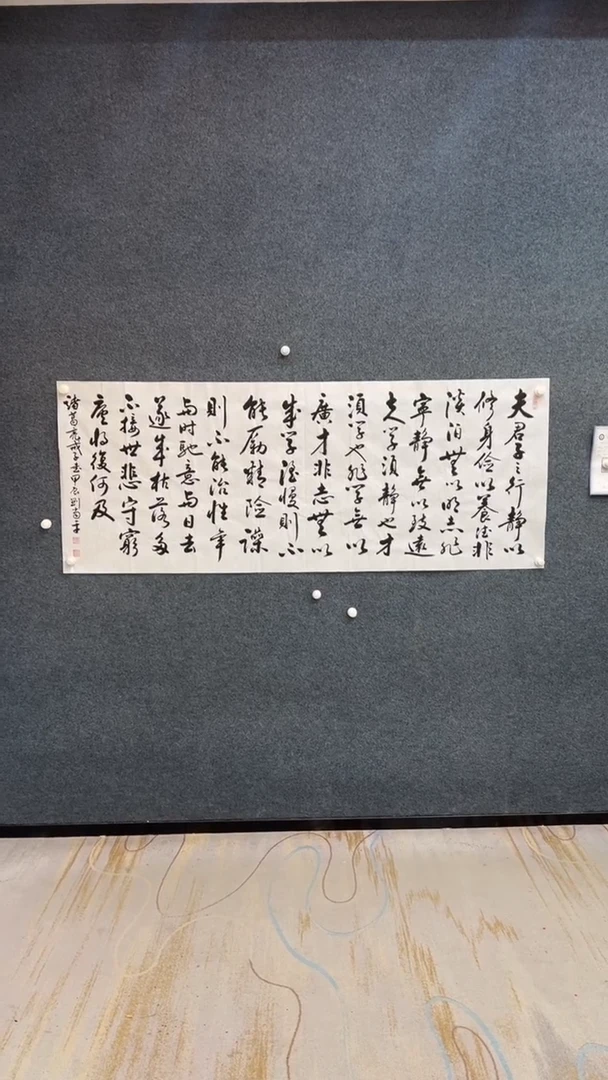 夫君子之行静以
修身俭以養德非
淡泊無以明志非
寧静無以致遠
夫学須静也才
須学也非学無以
廣才非志無以
成学淫慢則不
能励精险躁
則不能治性年
与时馳意与日去
遂成枯落多
不接世悲守窮
廬将復何及
诸葛亮誡子书甲辰刘